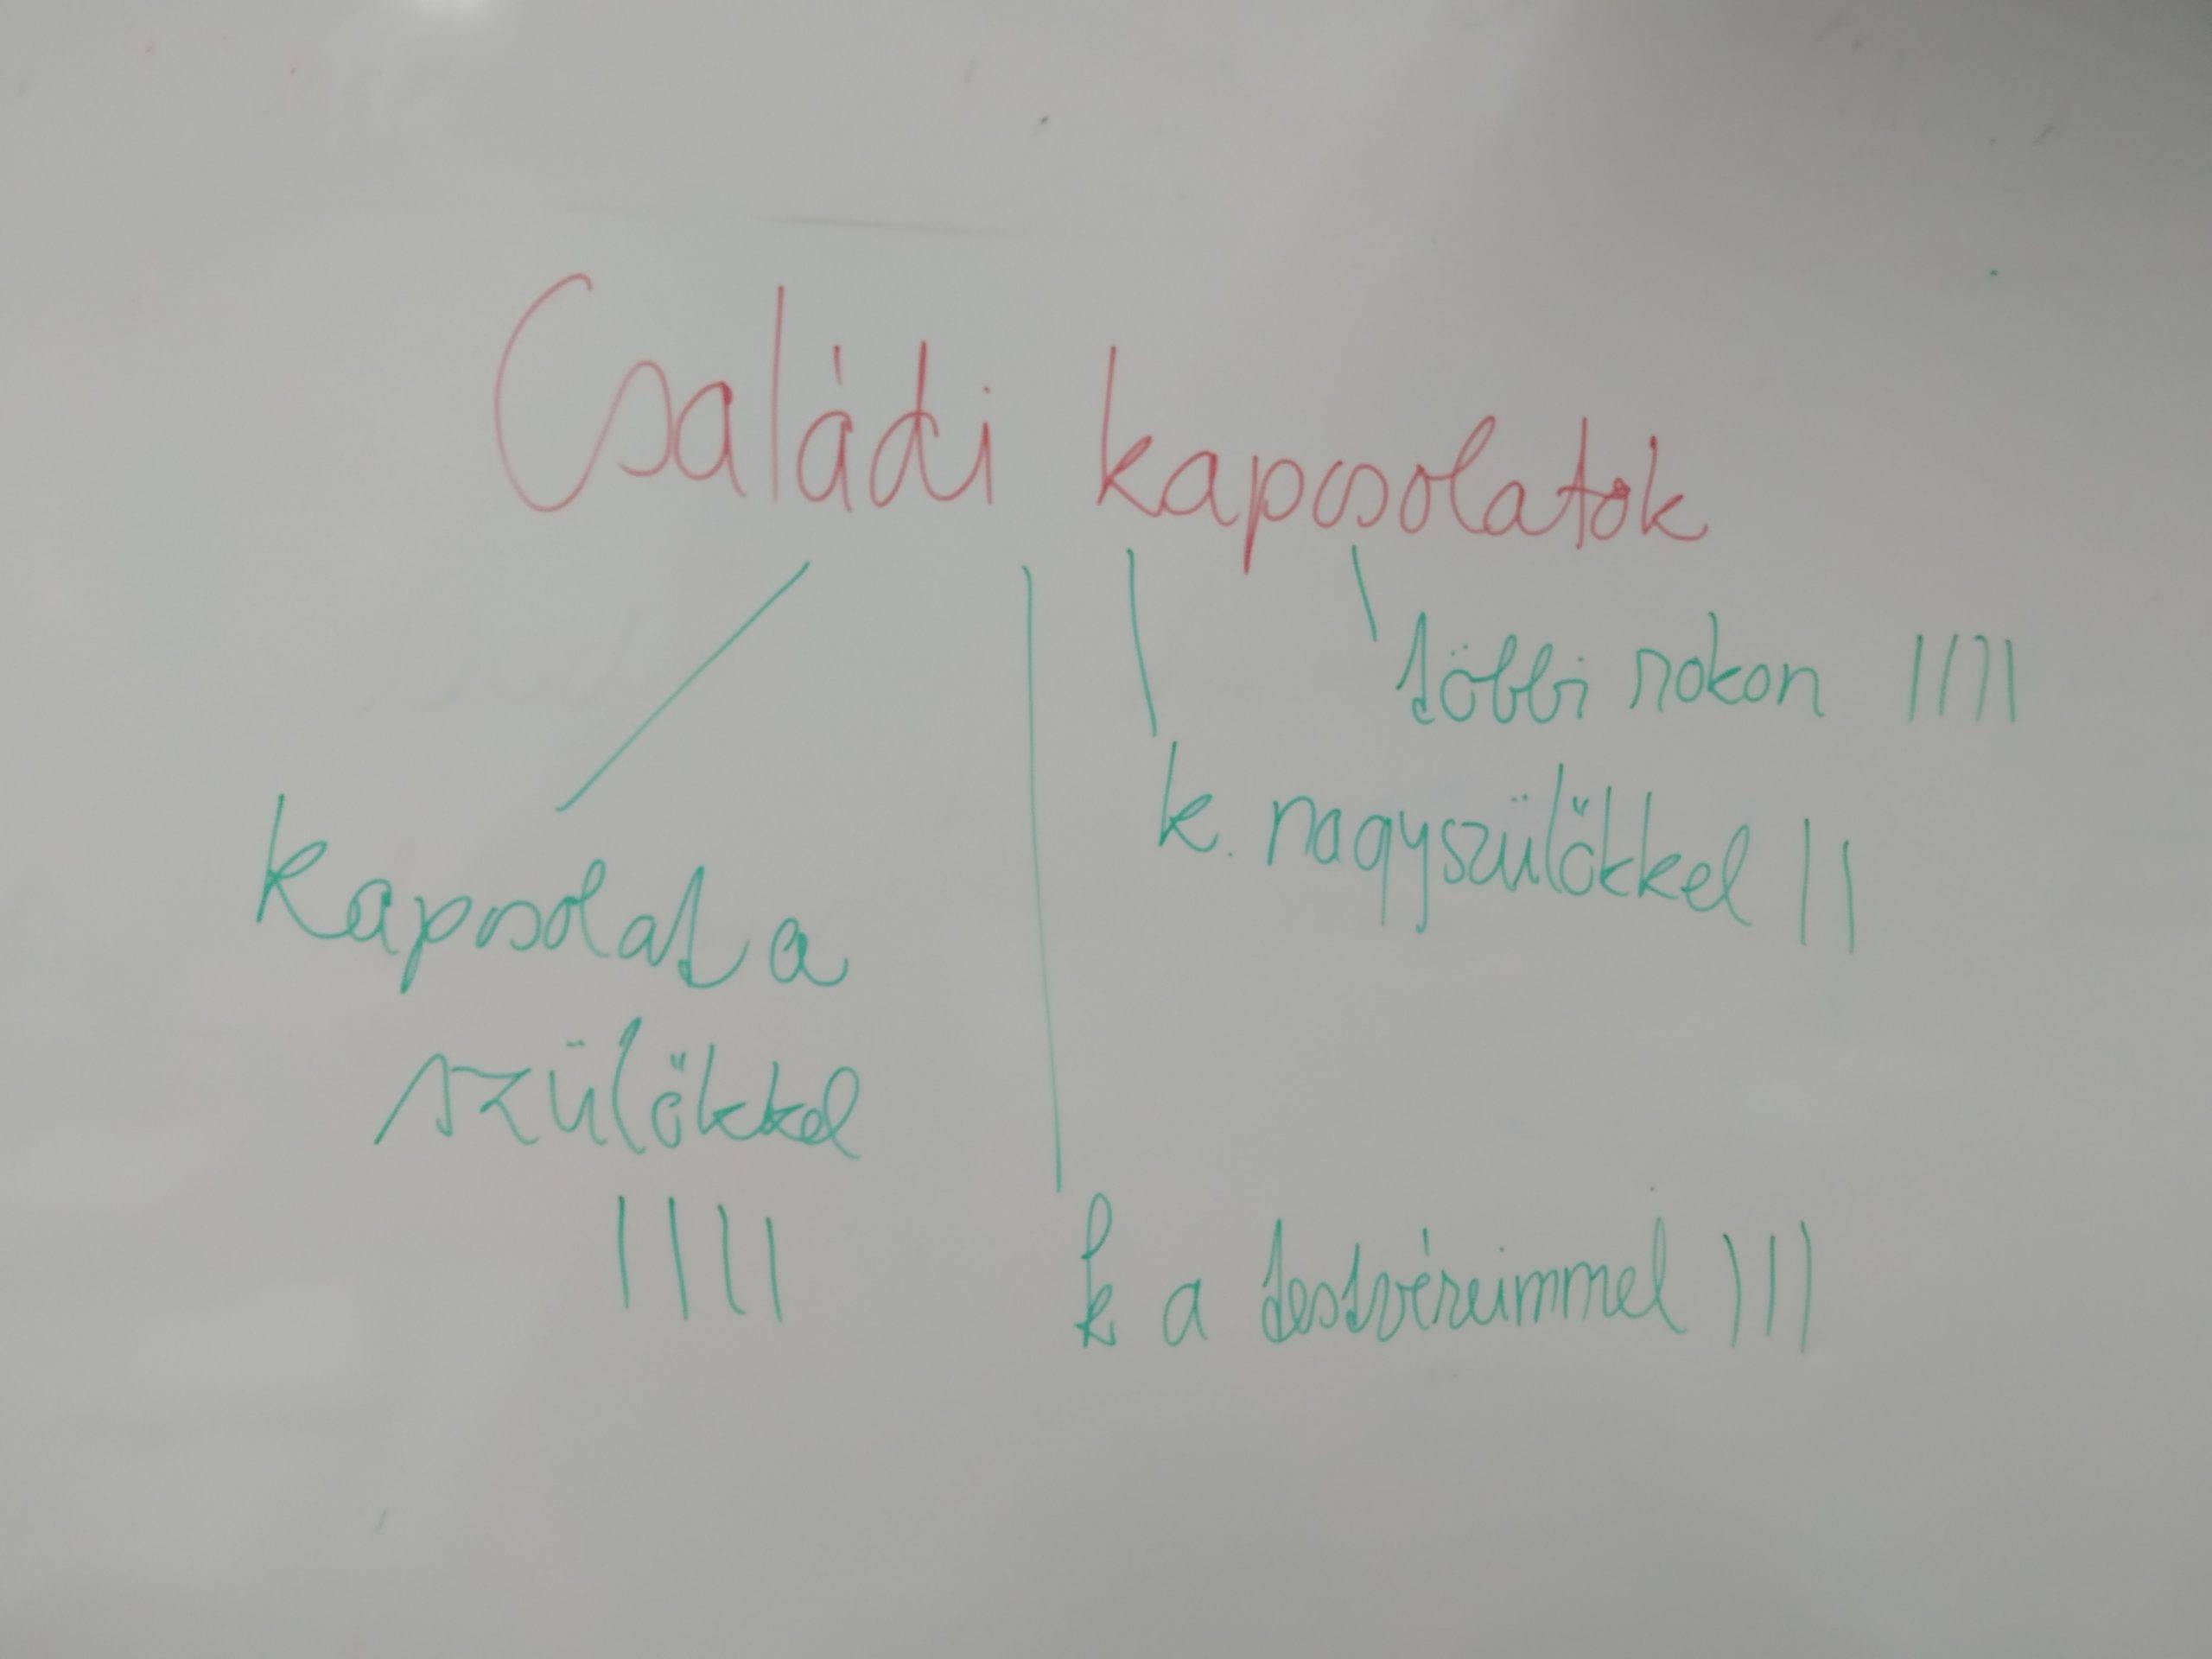 Családi kapcsolatok
többi rokon ||||
k. nagyszülőkkel ||
kapcsolat a
szülőkkel
||||
k a testvéreimmel |||